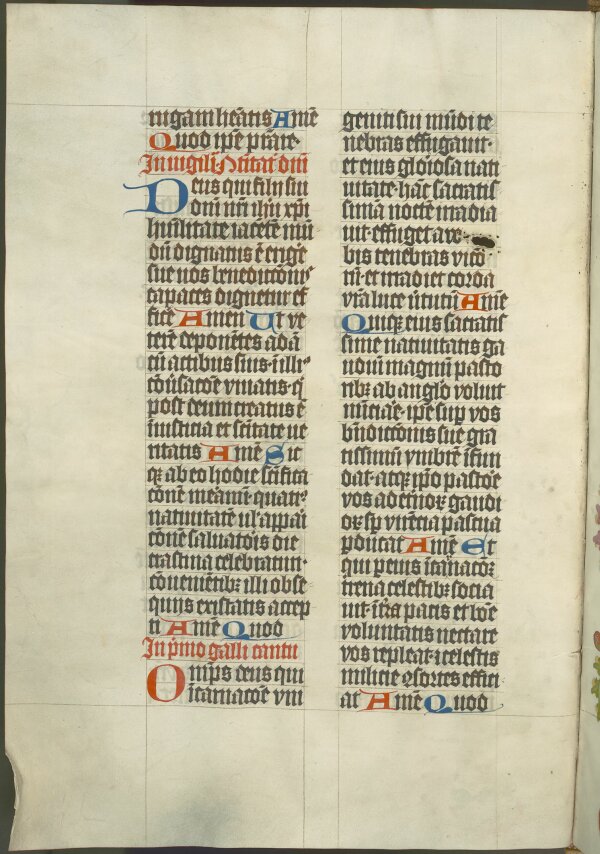 nigam hētis Amē
Quod ip̄e p̄stare
In uigili
Deus qui filij sui
Domi nr̄i ih̄u xp̄i
hūilitate iacētē mū
dū dignatus ē erige
sue nos benedictōnis
capaces dignetur ef
fice Amen Ut ve
terē deponētes adā
cū actibus suis illi
cōūsacōe viuatis q̄
post deum creatus ē
iusticia et scītate ue
ritatis Amē Sic
qz ab eo hodie scīfica
tōnē mēam
natiuitatē ul' appāi
tōnē saluatoris die
crastina celebraturi
cōuenientibz illi obse
quijs existatis accep
ti Amē Quod
In p̄mo galli cantu
Omp̄s deus qui
icarnacōe vni
geniti sui mūdi te
nebras effugauit
et eius gloiosa nati
uitate hāc sacratis
simā noctē irradia
uit effuget a
bis tenebras vicō
rū et irradiet corda
vr̄a luce ūtutū Amē
Quisqz eius sacratis
sime natiuitatis ga
udiū magnū pasto
ribz ab anglo voluit
nūciāe ip̄e sup vos
bn̄dictōnis sue gra
tissimū ymbrē ifun
dat atqz ip̄o pastōe
vos ad etnoꝝ gaudi
oꝝ sp̄ virētia pascua
pducat Amē Et
qui p eius icarnacōꝫ
trena celestibz socia
uit ip̄e pacis et bōe
voluntatis nectare
vos repleat i celestis
milicie ꝯsortes effici
at Amē Quod